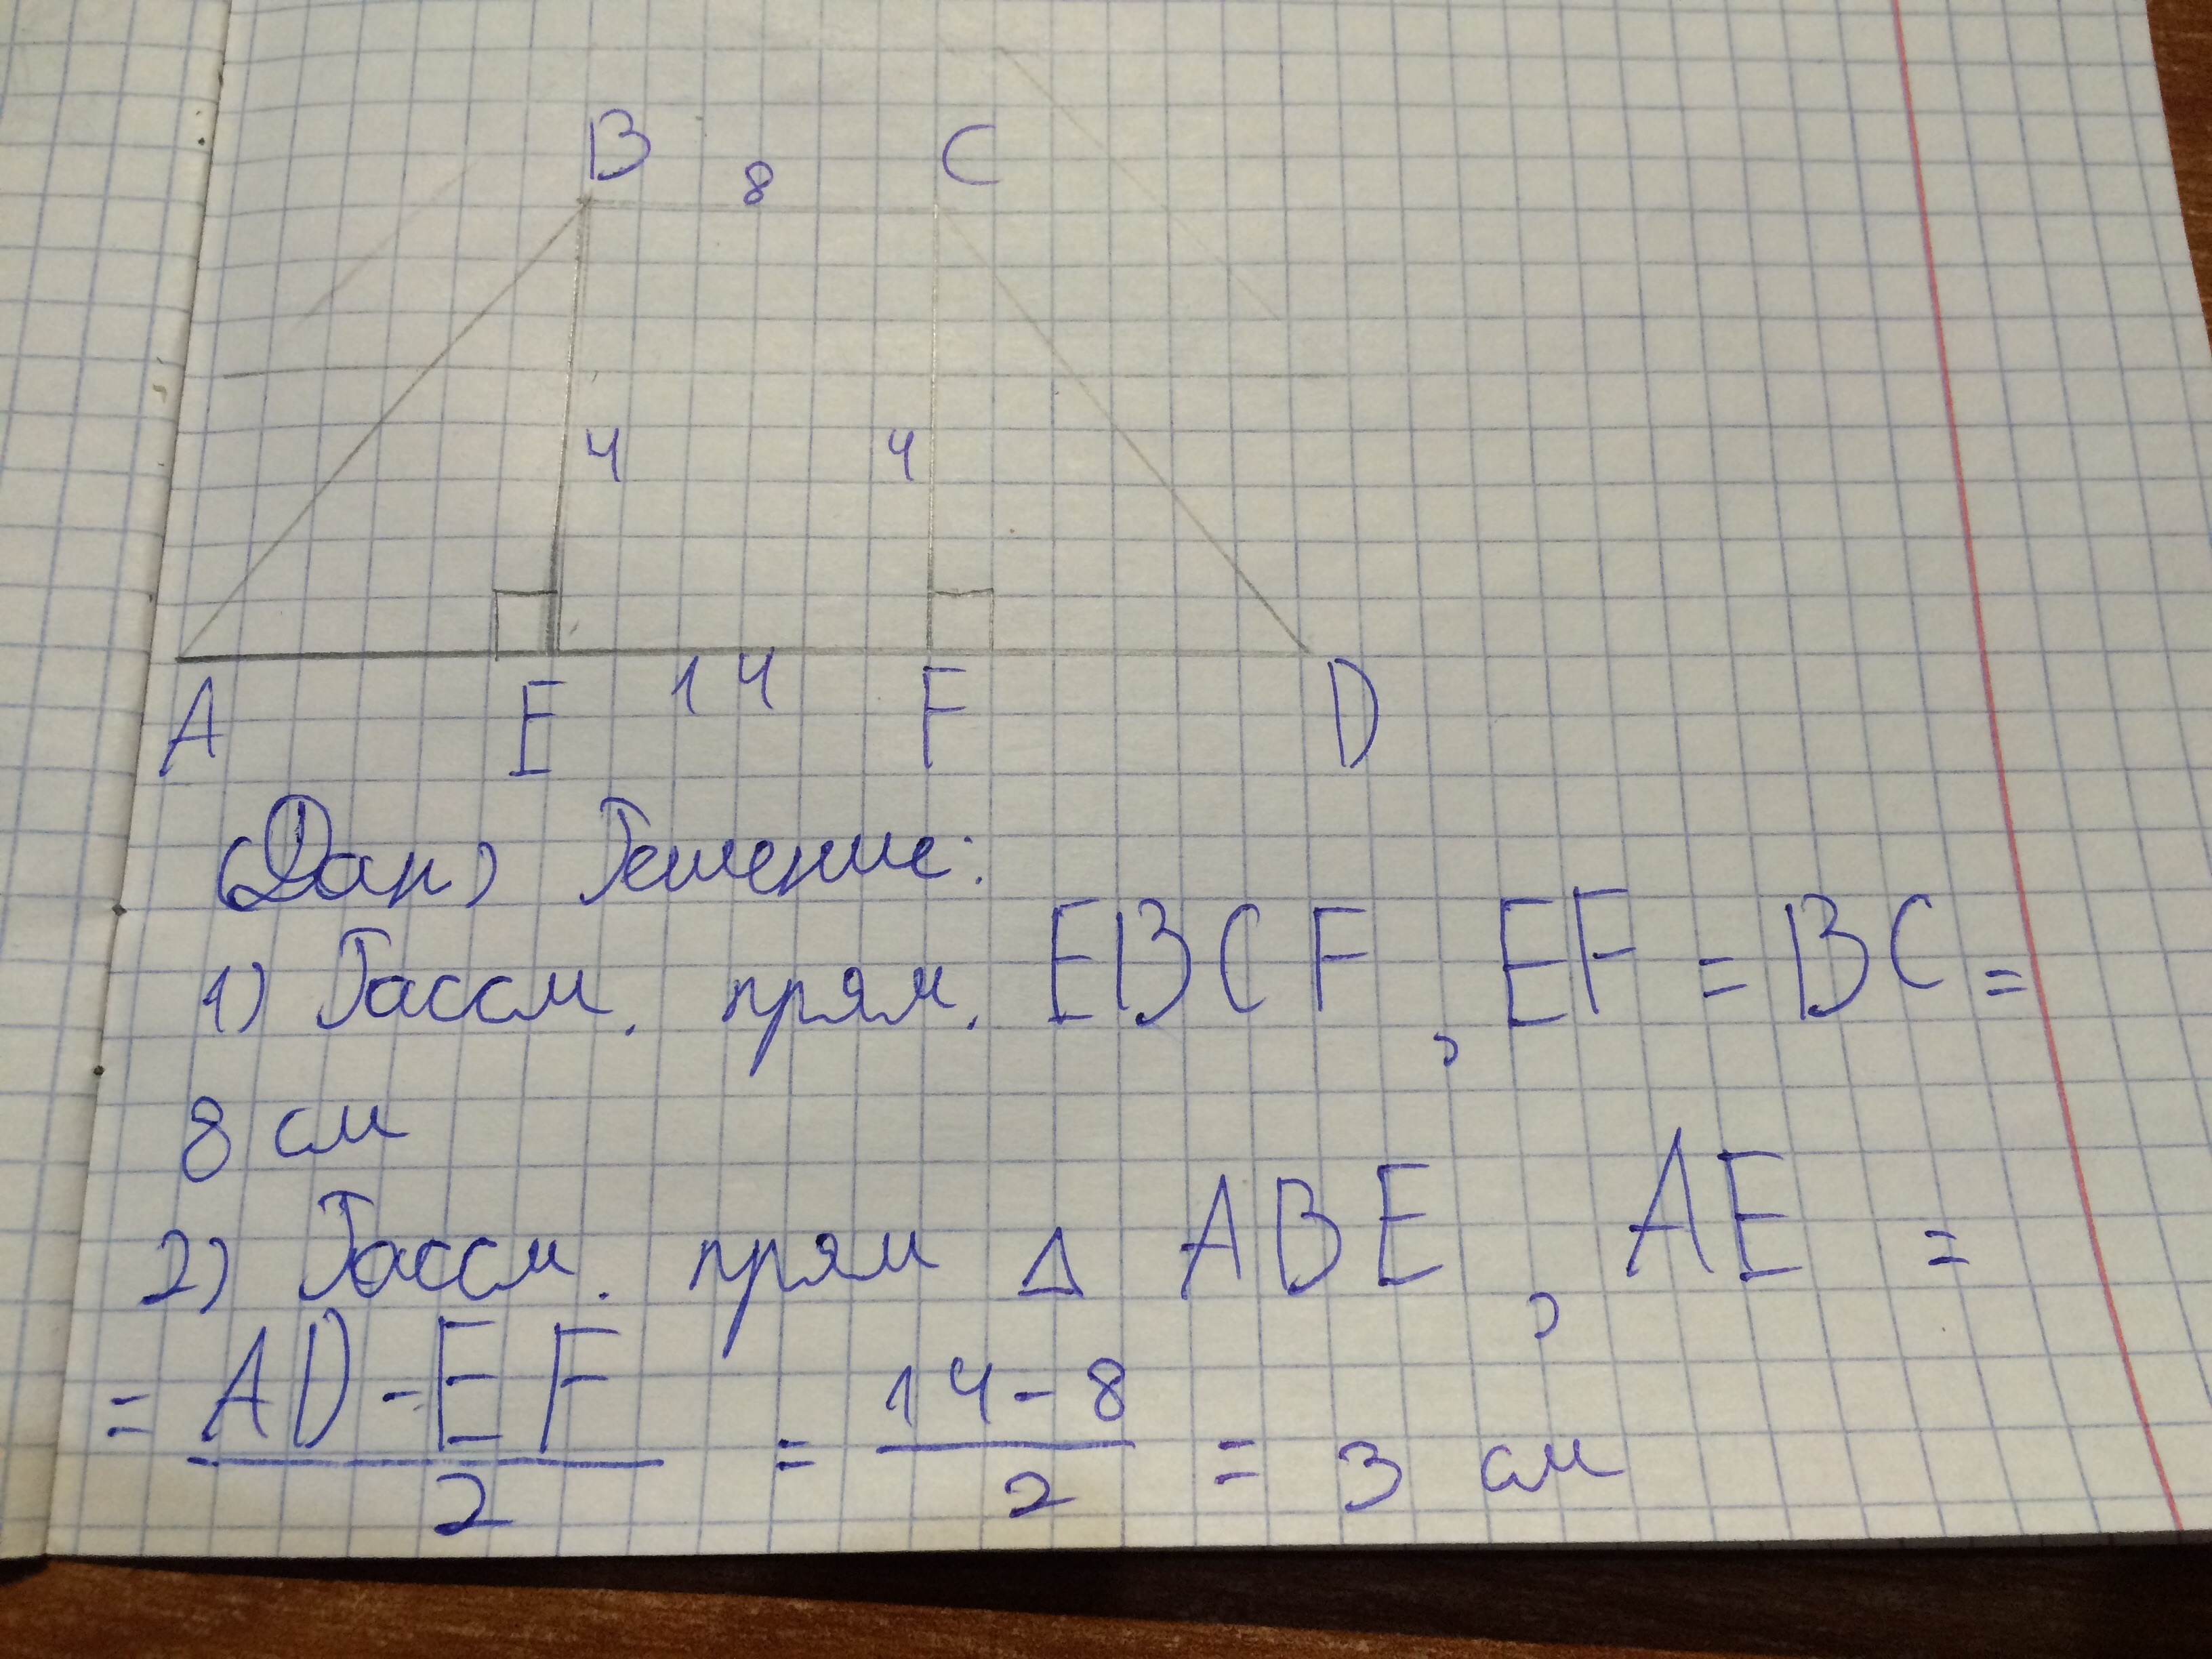 B 8 C
4 4
A E 14 F D
(Дан) Решение:
1) Рассм. прям. EBCF, EF = BC =
8 см
2) Рассм. прям Δ ABE, AE =
= AD - EF / 2 = 14 - 8 / 2 = 3 см